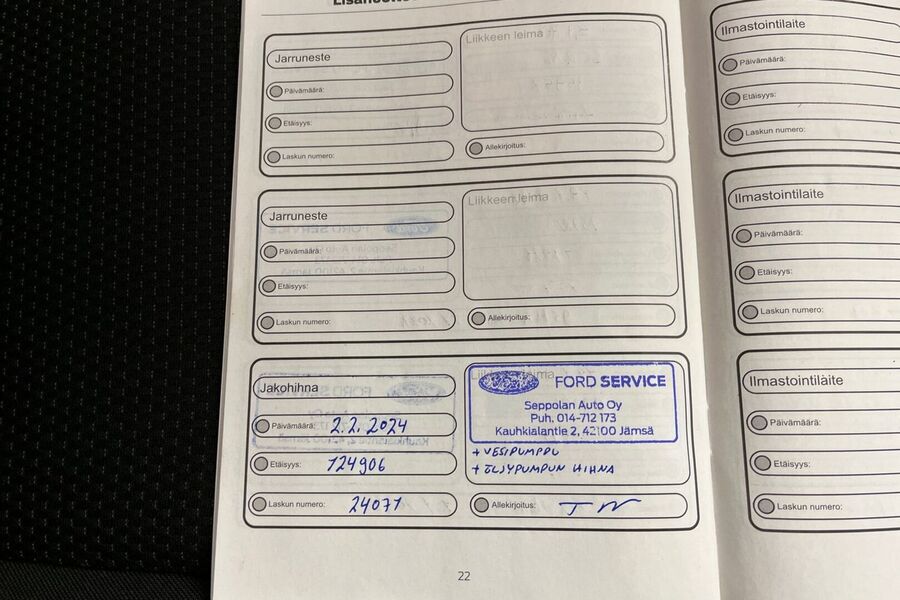 Jarruneste
Päivämäärä:
Etäisyys:
Laskun numero:
Liikkeen leima
Allekirjoitus:
Jarruneste
Päivämäärä:
Etäisyys:
Laskun numero:
Liikkeen leima
Allekirjoitus:
Jakohihna
Päivämäärä: 2.2.2024
Etäisyys: 124906
Laskun numero: 24071
Liikkeen leima
Ford
FORD SERVICE
Seppolan Auto Oy
Puh. 014-712 173
Kauhkialantie 2, 42100 Jämsä
+ VESIPUMPPU
+ ÖLJYPUMPUN HIHNA
Allekirjoitus:
22
Ilmastointilaite
Päivämäärä:
Etäisyys:
Laskun numero:
Ilmastointilaite
Päivämäärä:
Etäisyys:
Laskun numero:
Ilmastointilaite
Päivämäärä:
Etäisyys:
Laskun numero: